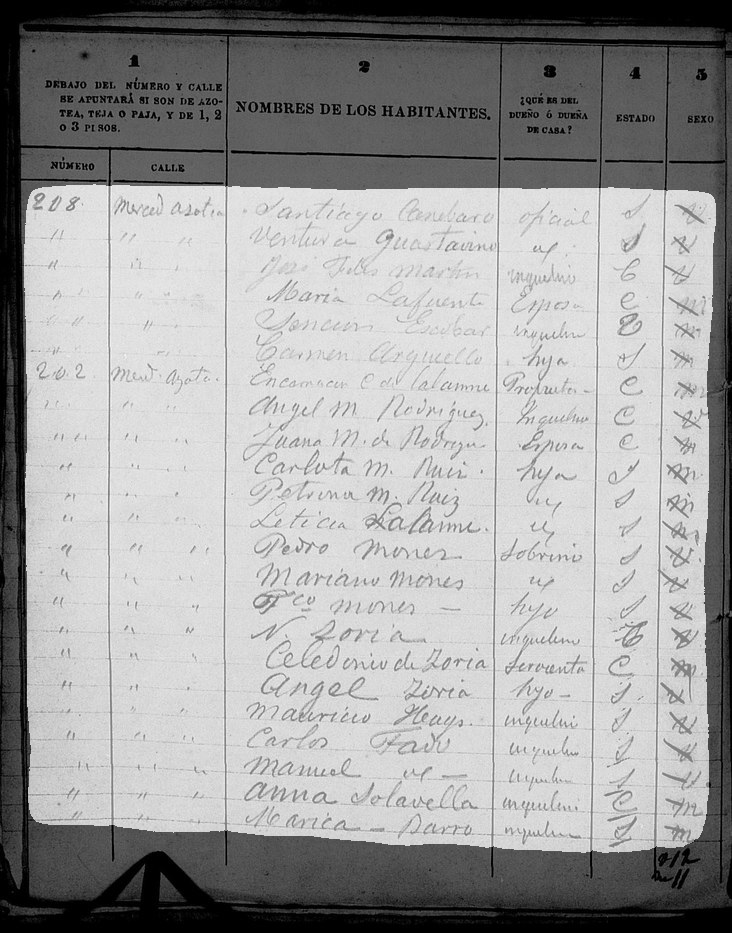 1 2 3 4 5
DEBAJO DEL NÚMERO Y CALLE
SE APUNTARÁ SI SON DE AZO-
TEA, TEJA O PAJA, Y DE 1, 2
O 3 PISOS.
NOMBRES DE LOS HABITANTES.
¿QUÉ ES DEL
DUEÑO Ó DUEÑA
DE CASA?
ESTADO
SEXO
NÚMERO CALLE
208. Merced azotea Santiago Canebaro oficial S
" " " Ventura Guastavino id. S
" " " José Martin inquilino C
" " " Maria Lafuente Esposa C
" " " Escobar inquilino
" " " Carmen Arguello hija S m
202 Merd. Azotea. Encarnacion C. de Lalanne Propieta- C m
" " " Angel M. Rodriguez Inquilino C
" " " Juana M. de Rodrigu Esposa C m
" " " Carlota M. Ruiz. hija S m
" " " Petrona M. Ruiz id S m
" " " Leticia Lalanne. id S
" " " Pedro Mones Sobrino S
" " " Mariano Mones id S
" " " Fco Mones - hijo S
" " " N. Zoria inquilino C
" " " Celedonio de Zoria Servienta C m
" " " Angel Zoria hijo - S
" " " Mauricio Heays. inquilino S
" " " Carlos inquilino S
" " " Manuel id - inquilino S
" " " Anna Solavella inquilino C m
" " " Marica - Parro inquilino S m
v 12
m 11